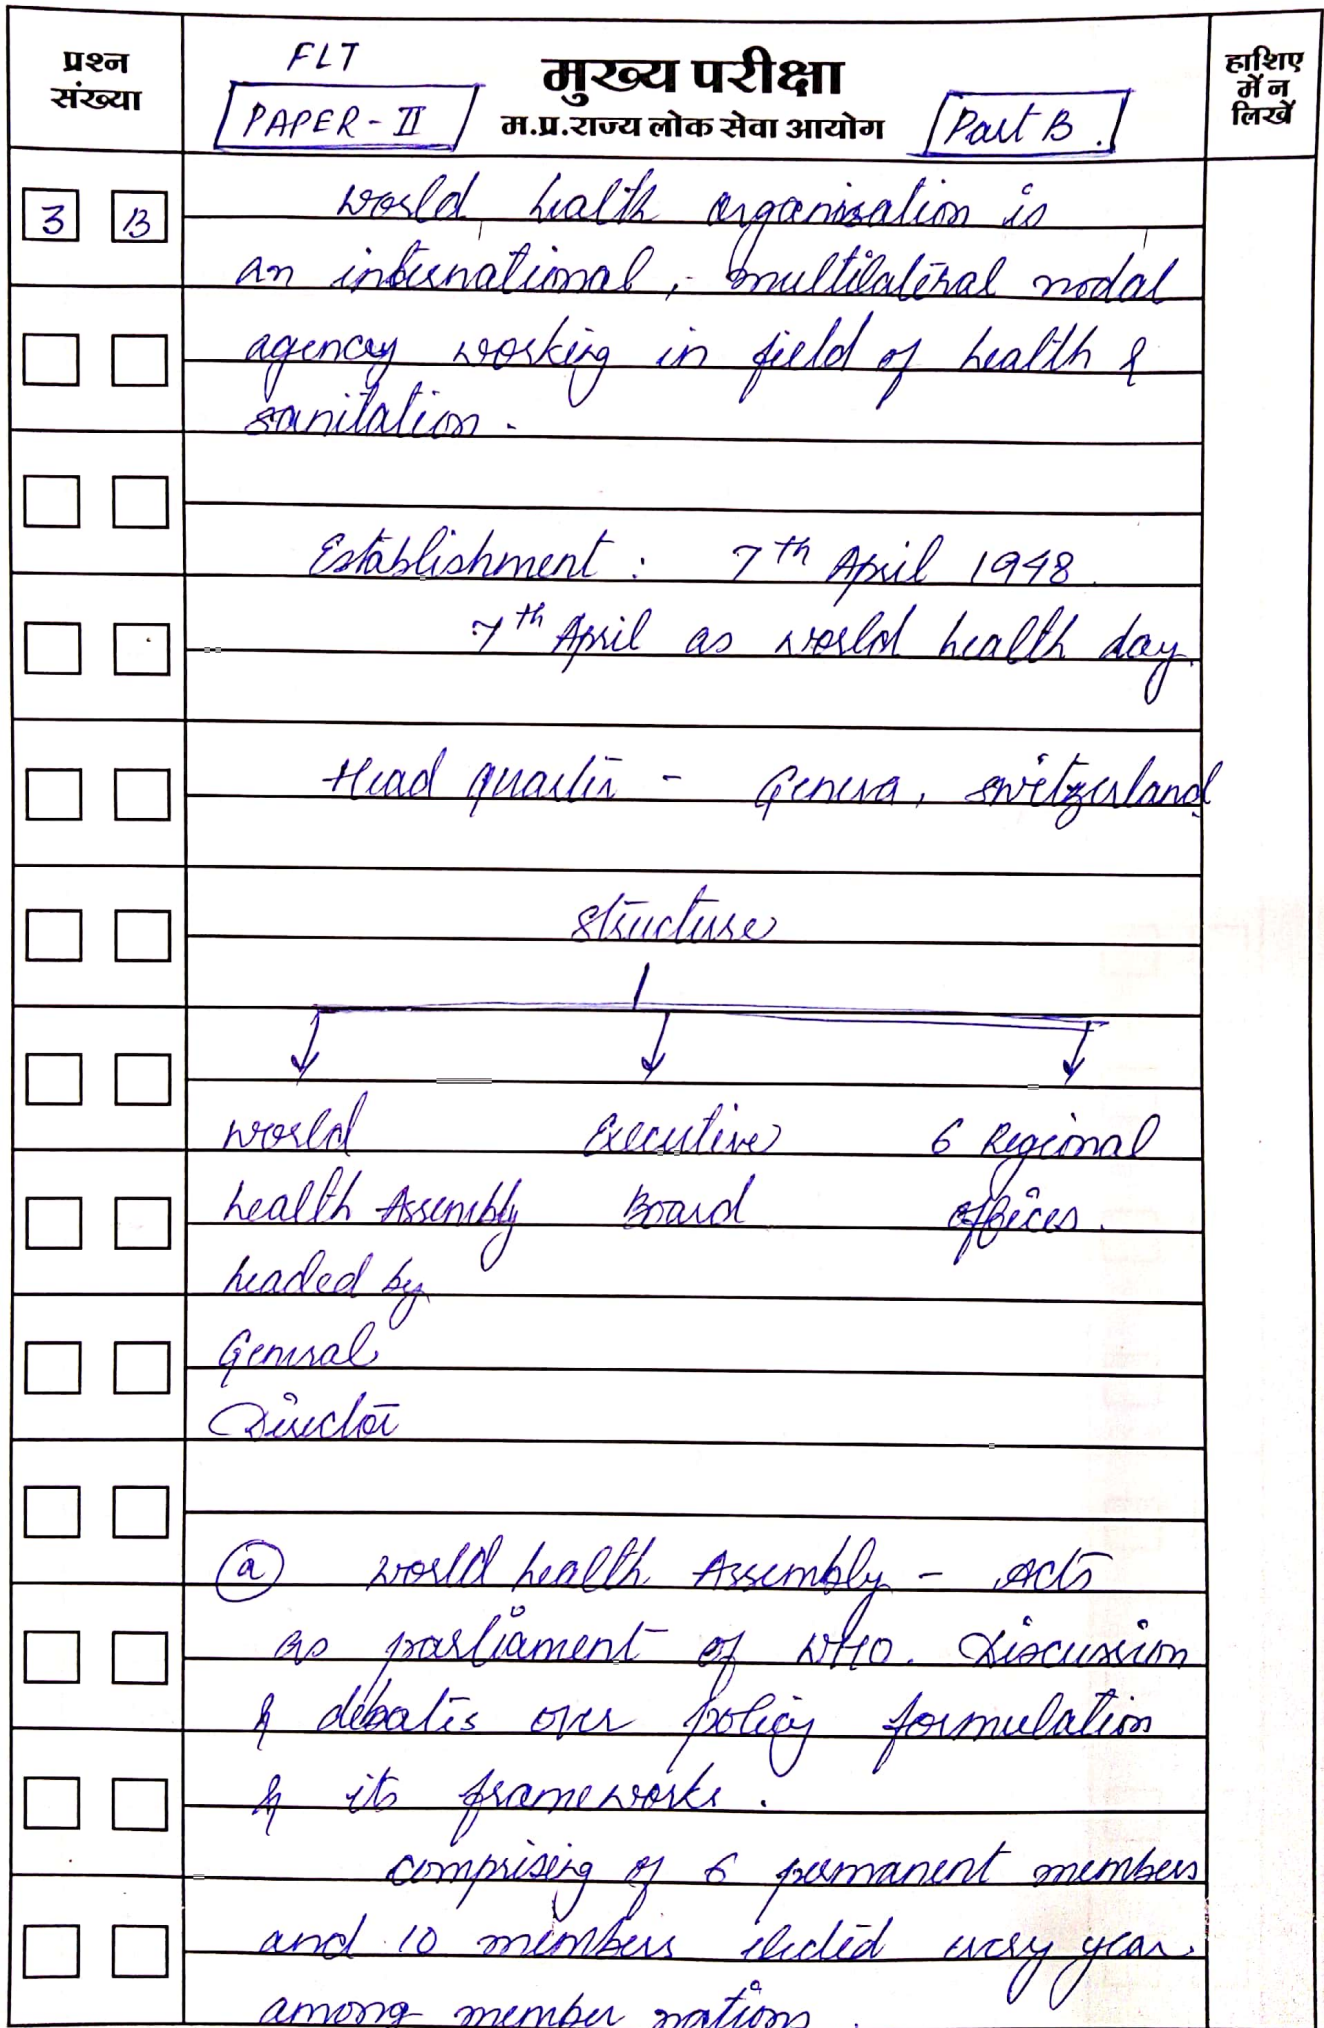 प्रश्न संख्या
FLT
PAPER - III
मुख्य परीक्षा
म.प्र.राज्य लोक सेवा आयोग
Part B.
हाशिए में न लिखें
3 B
world health organisation is
an international, multilateral nodal
agency working in field of health &
sanitation.
Establishment : 7th April 1948.
7th April as world health day.
Head quarter - Geneva, switzerland.
structure
world health Assembly headed by General Director
Executive Board
6 Regional offices.
(a) world health Assembly - Acts
as parliament of WHO. Discussion
& debates over policy formulation
& its frameworks.
comprising of 6 permanent members
and 10 members elected every year.
among member nations.